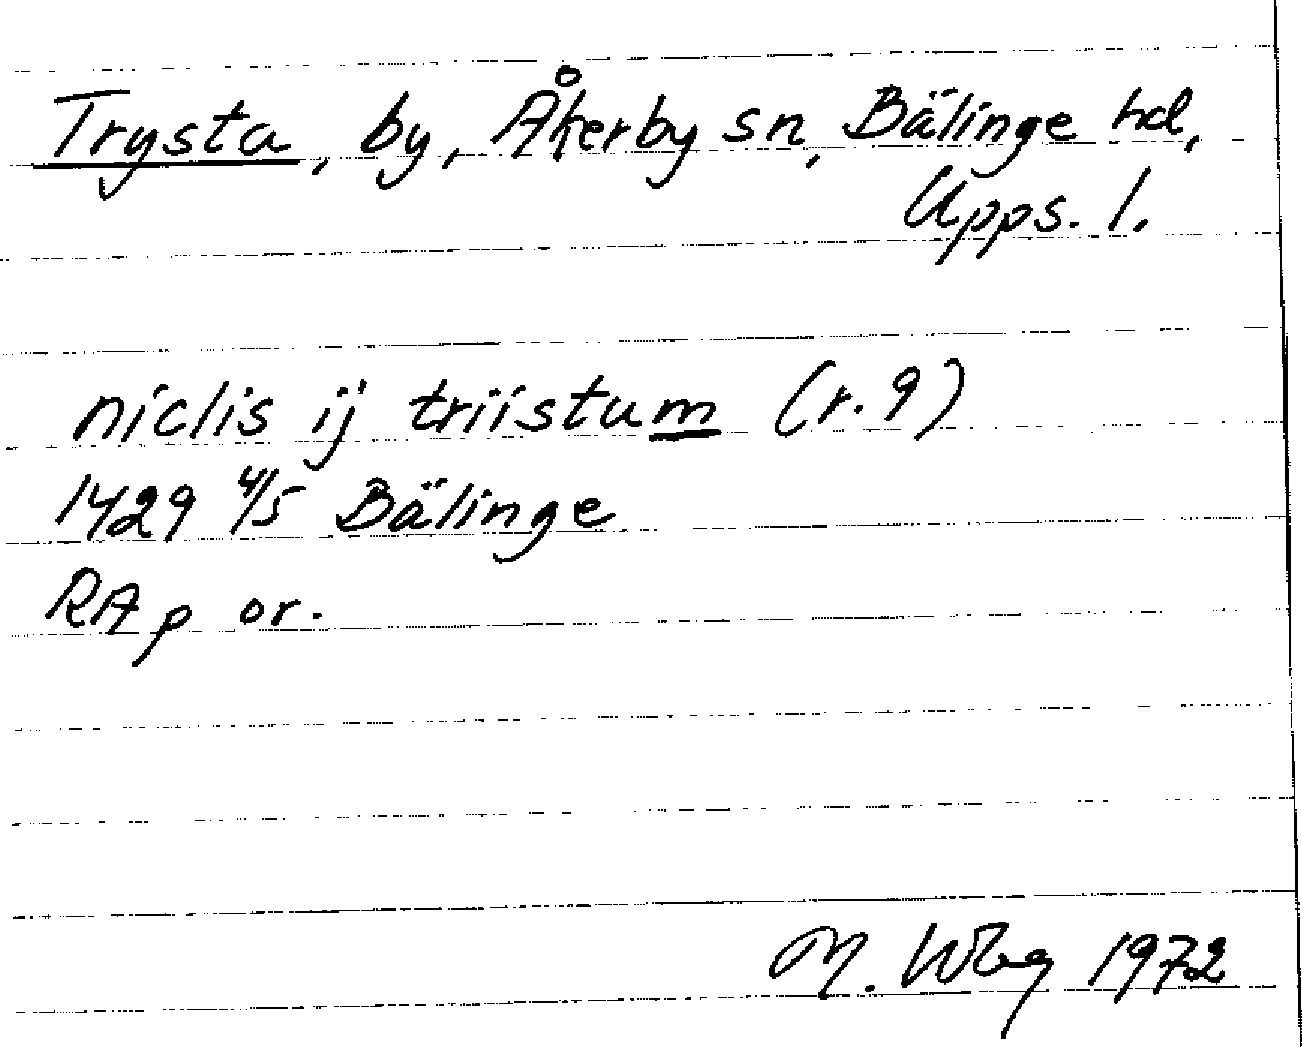 Trysta, by, Åkerby sn, Bälinge hd,
Upps. l.
niclis ij triistum (r. 9)
1429 4/5 Bälinge
RA p or.
M. Wbg 1972